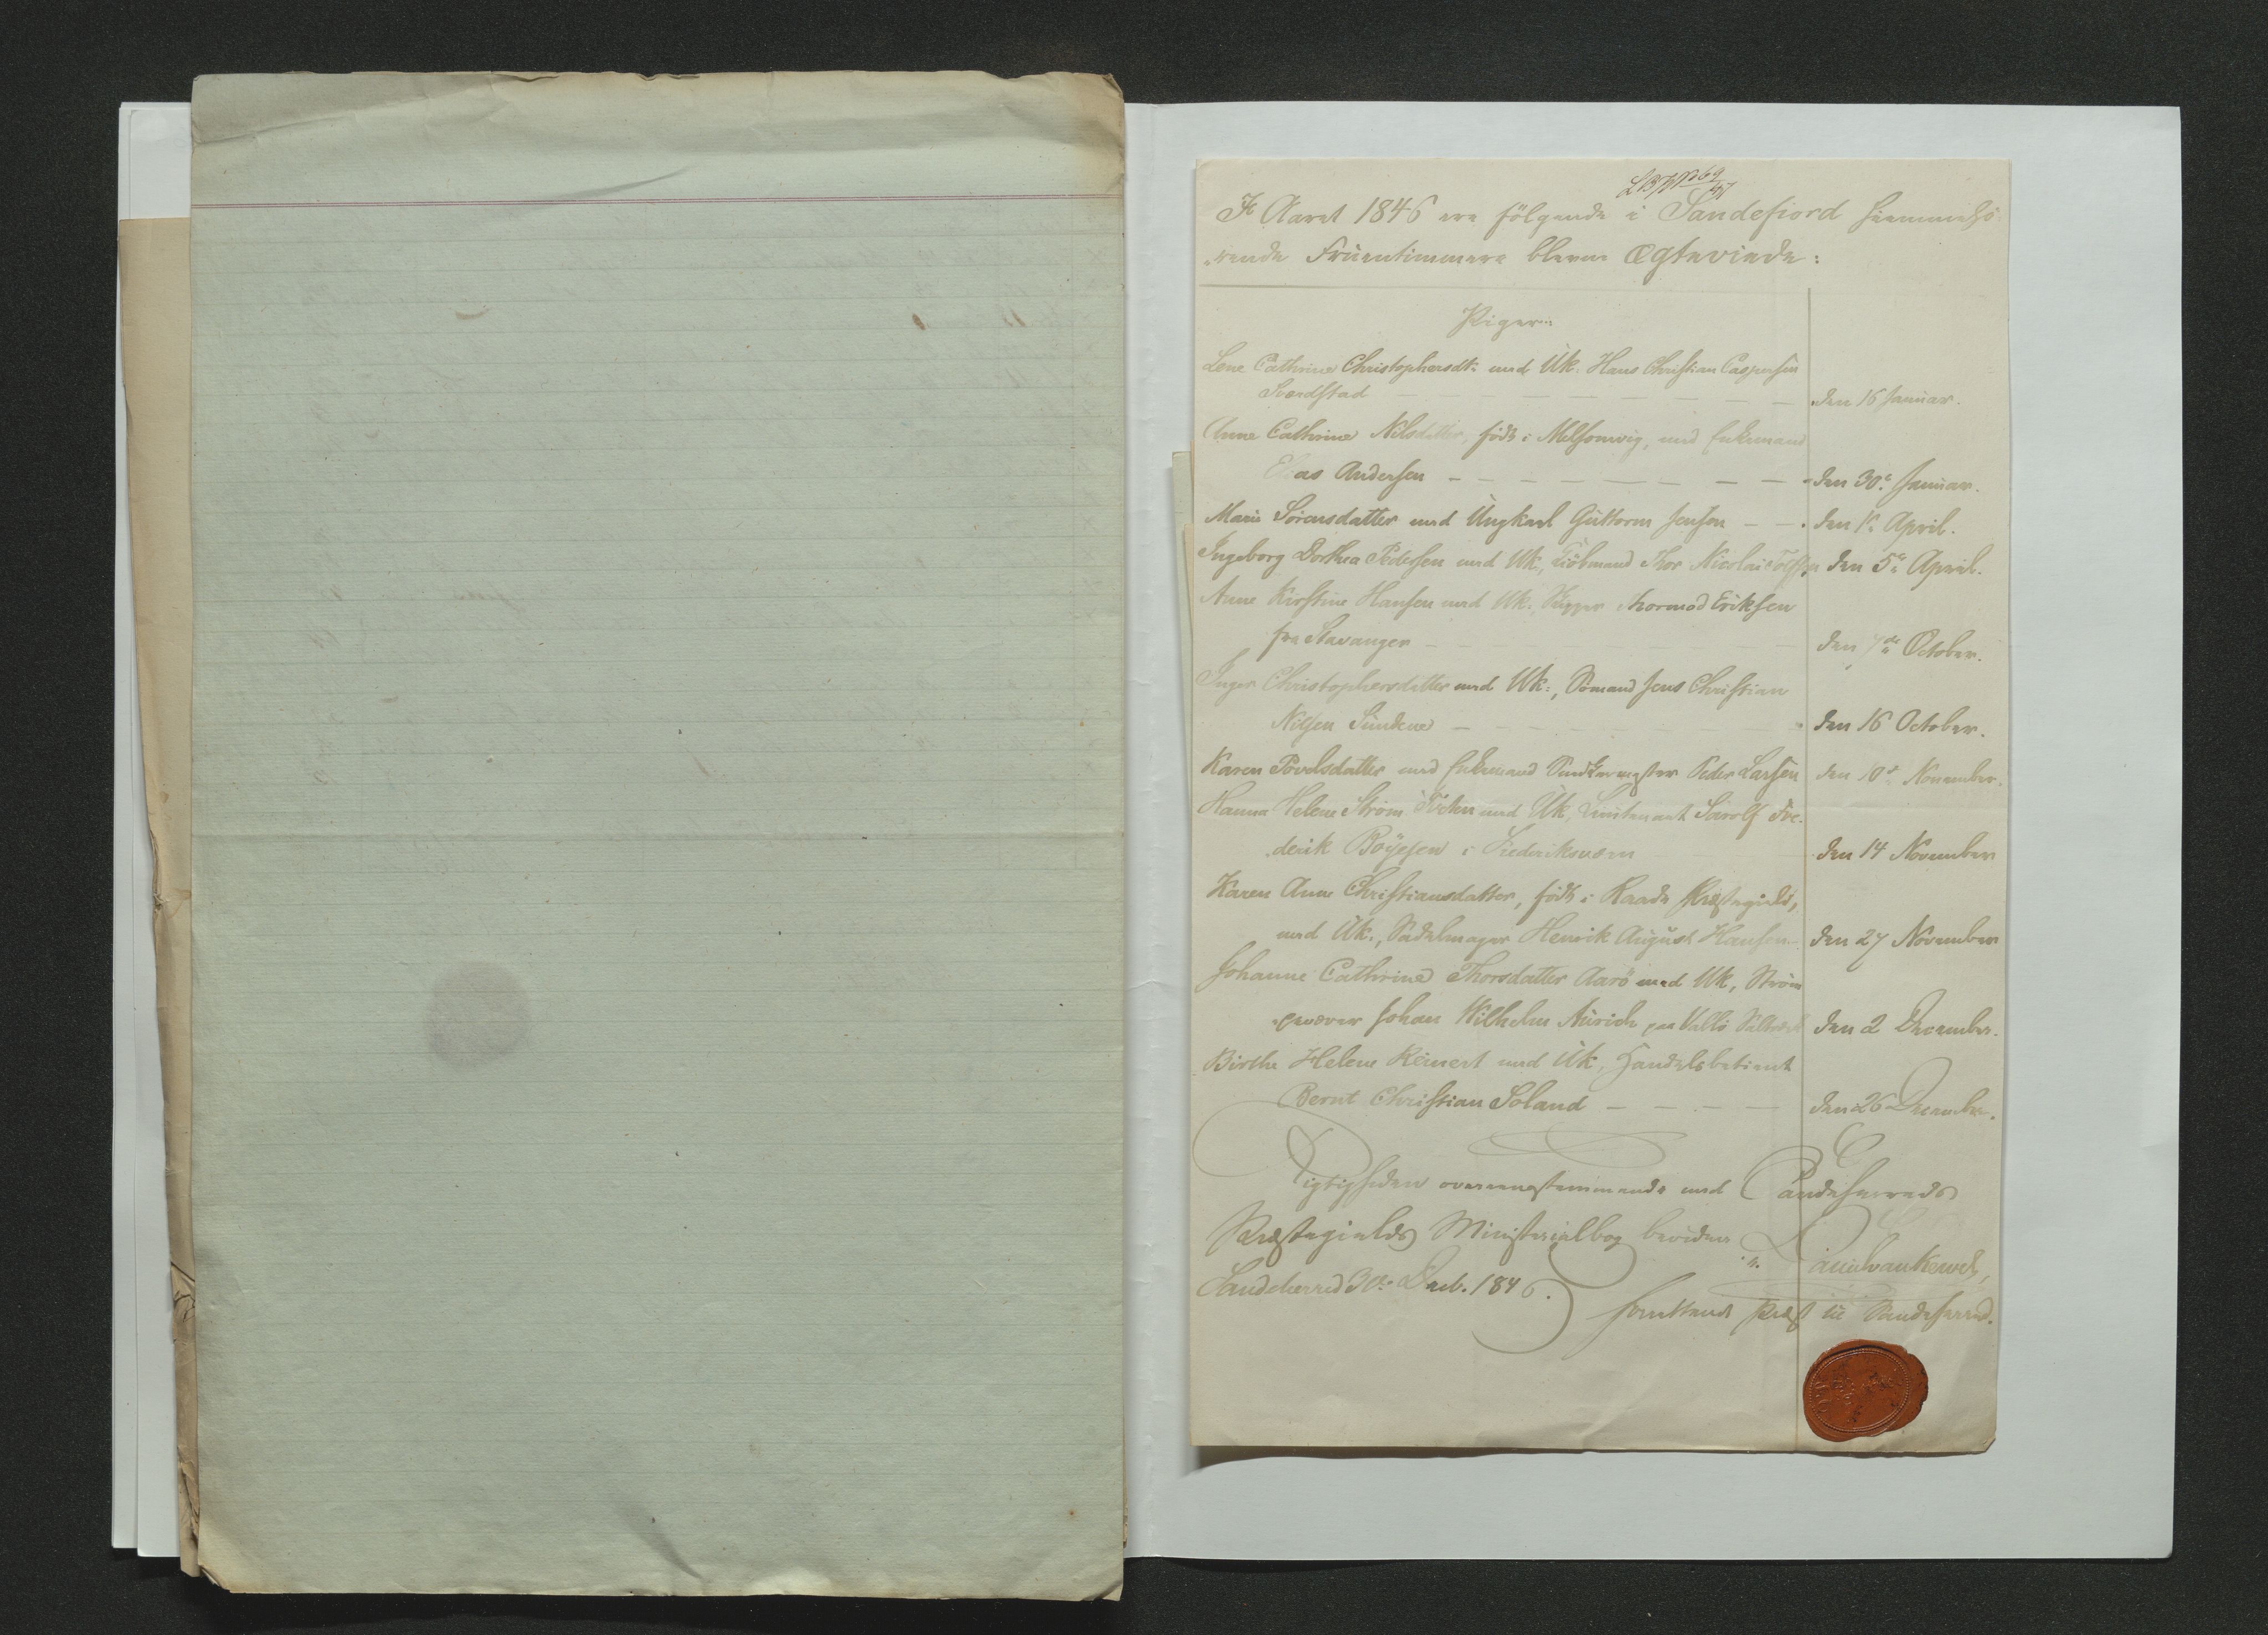 I Aaret 1846 ere følgende i Sandefiord hiemmehö-
rende Fruentimmere blevne Ægteviede:
Piger:
Lene Cathrine Christophersdtr med Uk. Hans Christian Caspersen
Sverdstad den 16 Januar.
Anne Cathrine Nilsdatter, født i Melsomvig, med Enkemand
Elias Andersen den 30te Januar.
Marie Sørensdatter med Ungkarl Guttorm Jensen den 1te April.
Ingeborg Dorthea Pedersen med Uk., Kiöbmand Thor Nicolai den 5te April.
Anne Kirstine Hansen med Uk., Skipper Thormod Eriksen
fra Stavanger den 7de October.
Inger Christophersdatter med Uk:, Sömand Jens Christian
Nilsen Sundene den 16 October.
Karen Povelsdatter med Enkemand Peder Larsen den 10de November.
Hanna Helene Strøm med Uk, Lieutenant Sarolf Fre-
derik Böÿesen i Frederiksværn den 14 November
Karen Anne Christiansdatter, født i Raade Præstegield,
med Uk., Sadelmager Henrik August Hansen den 27 November
Johanne Cathrine Thorsdatter Aarö med Uk,
Johan Wilhelm paa Vallö Saltværk den 2 December.
Birthe Helene Reinert med Uk, Handelsbetient
Bernt Christian Soland den 26 December.
Rigtigheden overeensstemmende med Sandeherreds
Præstegields Ministerialbog bevidner
Sandeherred 30te Decb. 1846.
Præst til Sandeherred.